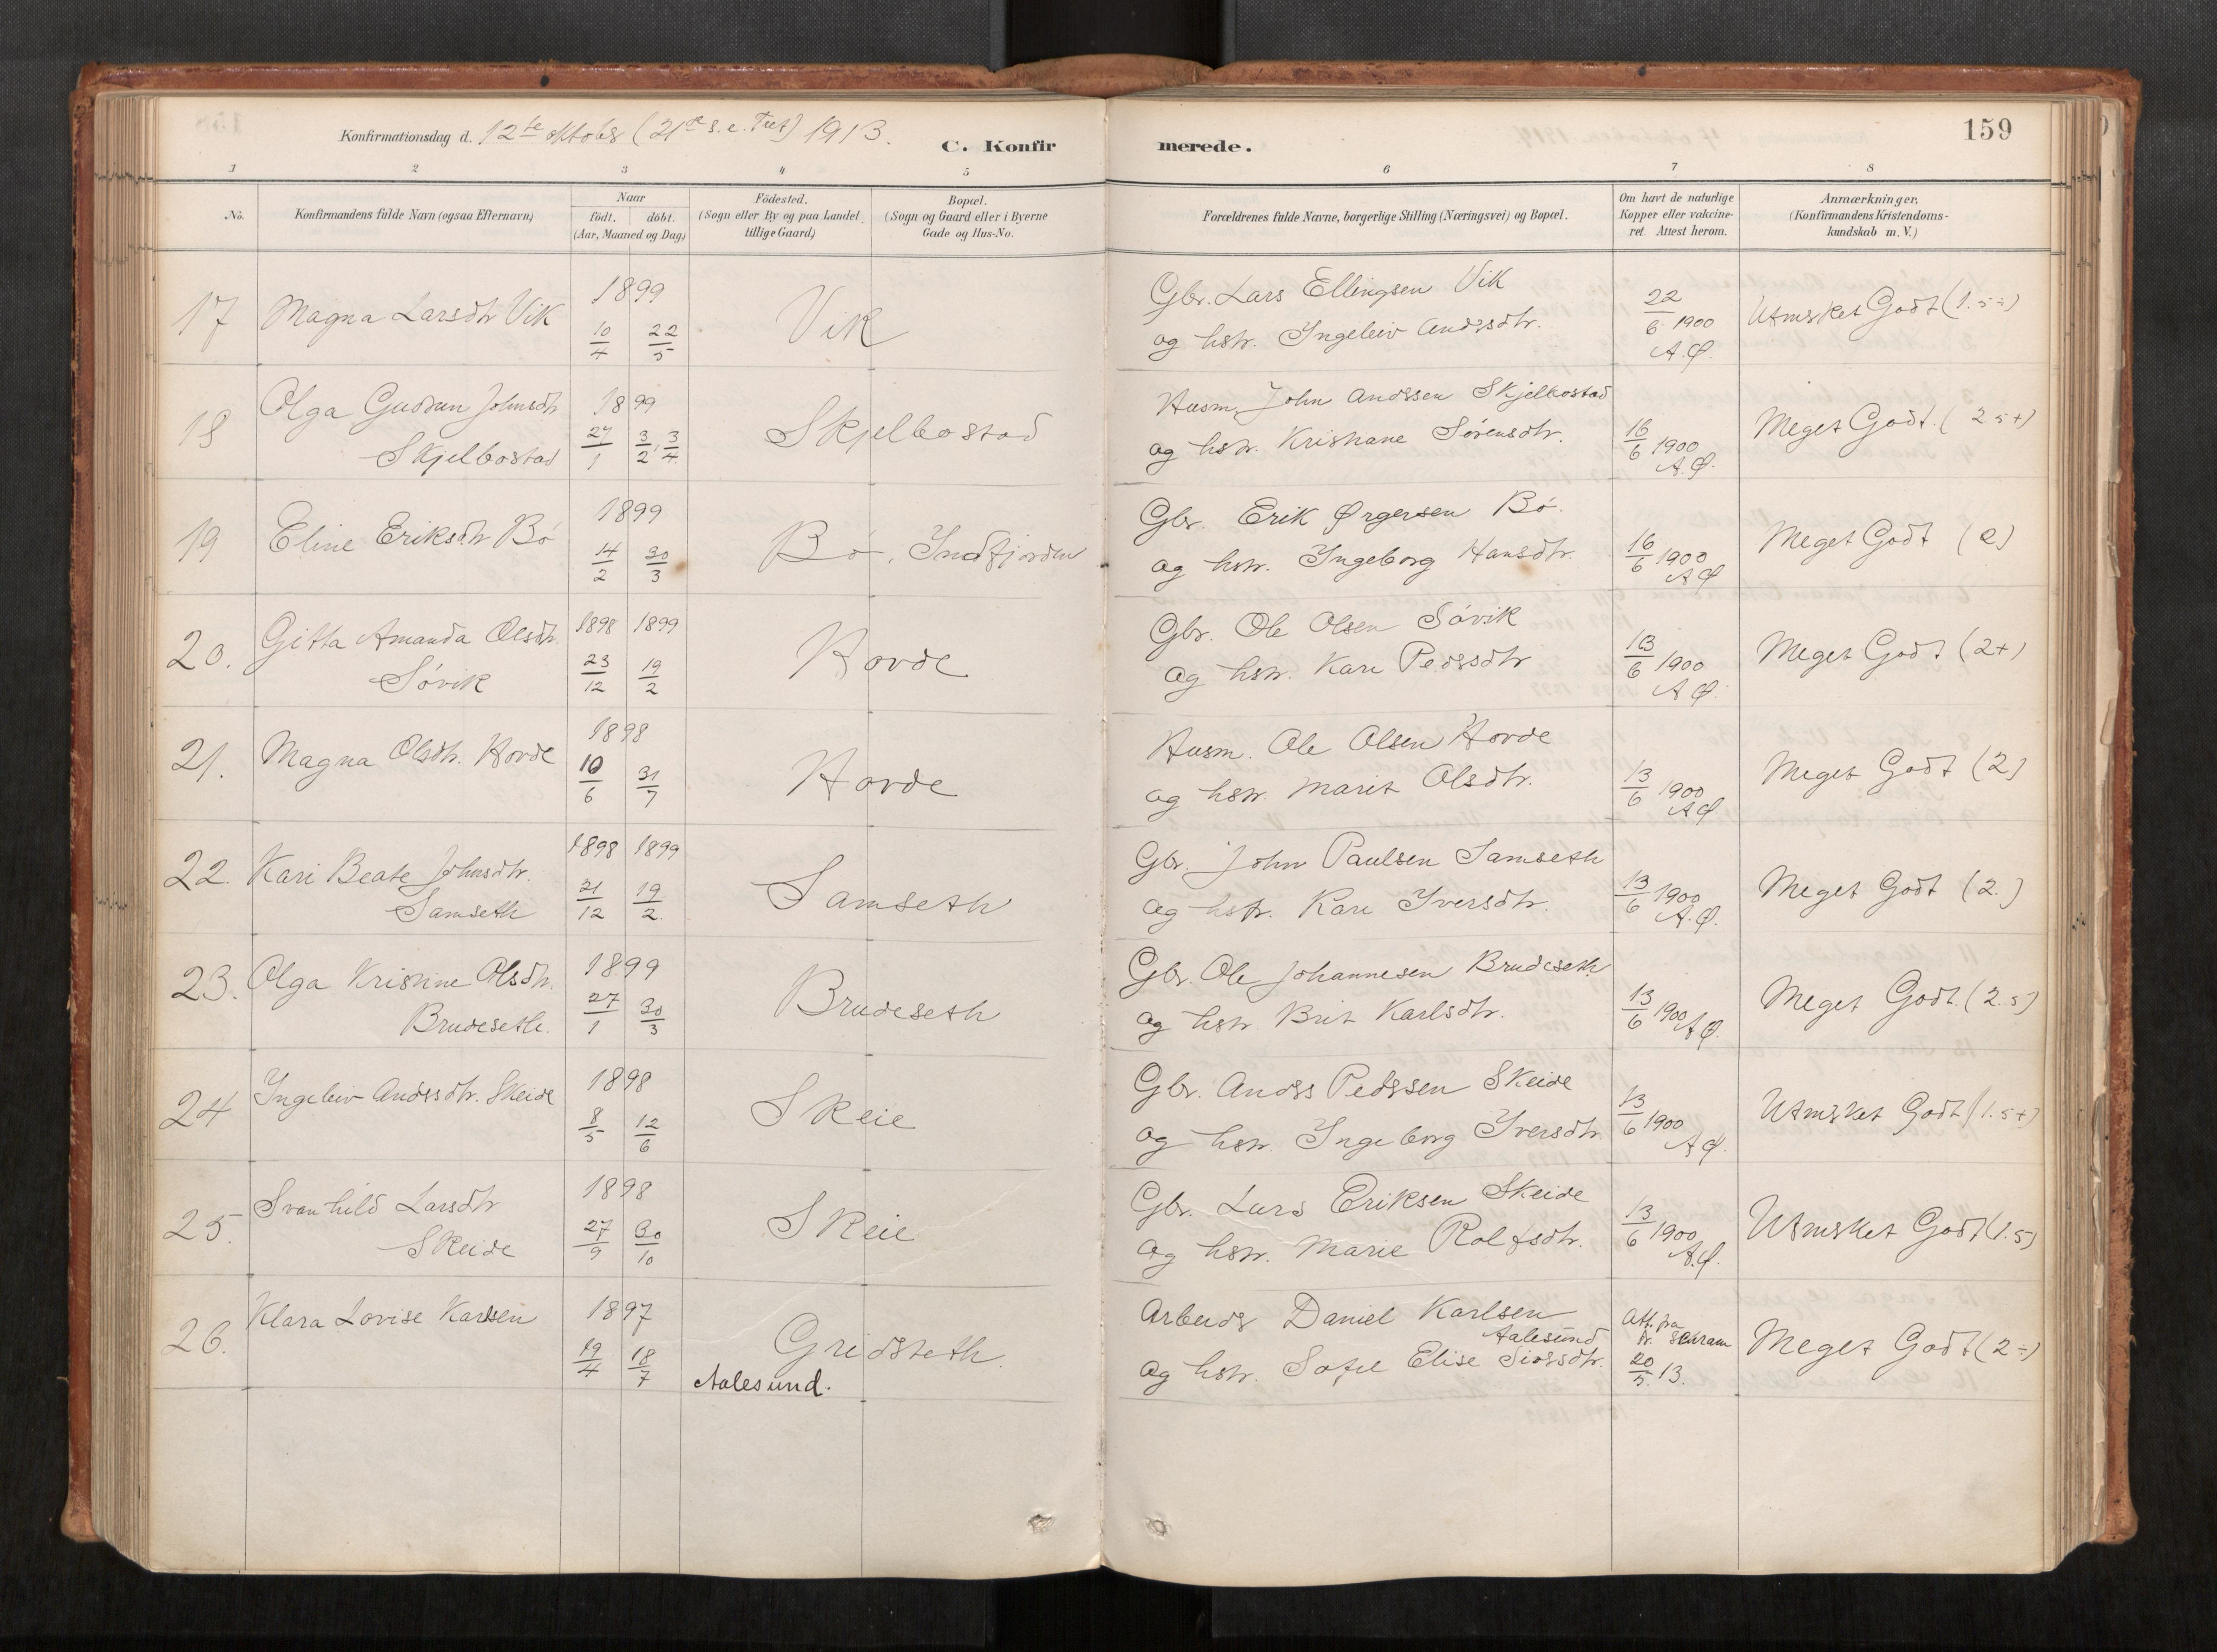 Konfirmationsdag d. 12te oktober (21de s. e. Tref) 1913.
C. Konfir
merede.
159
1 2 3 4 5 6 7 8
No.
Konfirmandens fulde Navn (ogsaa Efternavn)
Naar
födt. döbt.
(Aar, Maaned og Dag)
Födested.
(Sogn eller By og paa Landet
tillige Gaard)
Bopæl.
(Sogn og Gaard eller i Byerne
Gade og Hus-No.
Forældrenes fulde Navne, borgerlige Stilling (Næringsvei) og Bopæl.
Om havt de naturlige
Kopper eller vakcine-
ret. Attest herom.
Anmærkninger.
(Konfirmandens Kristendoms-
kundskab m. V.)
17 Magna Larsdtr Vik
1899
10/4 22/5
Vik
Gbr. Lars Ellingsen Vik
og hstr. Ingeleiv Andersdtr.
22/6 1900
A.Ø.
Utmerket Godt (1.5÷)
18 Olga Gudrun Johnsdtr
Skjelbostad
1899
27/1 3/2, 3/4
Skjelbostad
Husm. John Anderssen Skjelbostad
og hstr. Kristiane Sørensdtr.
16/6 1900
A.Ø.
Meget Godt. (2.5+)
19 Eline Eriksdtr Bø
1899
14/2 30/3
Bø, Indfjorden
Gbr. Erik Ørgersen Bø.
og hstr. Ingeborg Hansdtr.
16/6 1900
A Ø
Meget Godt (2)
20. Gitta Amanda Olsdtr.
Søvik
1898 1899
23/12 19/2
Hovde
Gbr. Ole Olsen Søvik
og hstr. Kari Pedersdtr
13/6 1900
A Ø.
Meget Godt (2+)
21. Magna Olsdtr. Hovde
1898
10/6 31/7
Hovde
Husm. Ole Olsen Hovde
og hstr. Marit Olsdtr.
13/6 1900
A Ø
Meget Godt (2)
22. Kari Beate Johnsdtr.
Samseth
1898 1899
21/12 19/2.
Samseth
Gbr. John Paulsen Samseth
og hstr. Kari Iversdtr.
13/6 1900
A.Ø.
Meget Godt (2.)
23. Olga Kristine Olsdtr.
Brudeseth.
1899
27/1 30/3
Brudeseth
Gbr. Ole Johannesen Brudeseth
og hstr. Brit Karlsdtr.
13/6 1900
A Ø.
Meget Godt. (2.5)
24 Ingeleiv Andersdtr. Skeide
1898
8/5 12/6
Skeie
Gbr. Anders Pedersen Skeide
og hstr. Ingeborg Iversdtr.
13/6 1900
A Ø.
Utmerket Godt (1.5+)
25. Svanhild Larsdtr
Skeide
1898
27/9 30/10
Skeie
Gbr. Lars Eriksen Skeide
og hstr. Marie Rolfsdtr.
13/6 1900
A.Ø.
Utmerket Godt (1.5)
26. Klara Lovise Karlsen
1897
19/4 18/7
Gridseth.
Aalesund.
Arbeider Daniel Karlsen
Aalesund
og hstr. Sofie Elise
Att. fra
dr. Schram
20/5. 13.
Meget Godt (2÷)